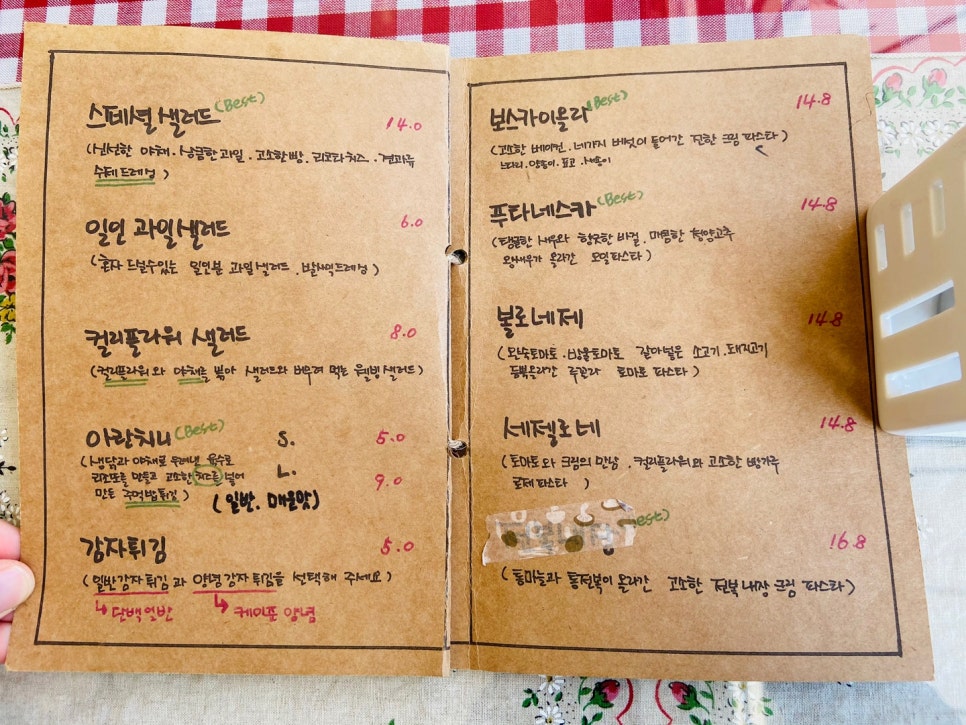 스페셜 샐러드 (Best) 14.0
(신선한 야채. 상큼한 과일. 고소한 빵. 리코타 치즈. 견과류
수제 드레싱)
일인 과일 샐러드 6.0
(혼자 드실수있는 일인분 과일 샐러드. 발사믹드레싱)
컬리플라워 샐러드 8.0
(컬리플라워와 야채를 볶아 샐러드와 버무려 먹는 웰빙 샐러드)
아란치니 (Best) S. 5.0
(생닭과 야채로 우려낸 육수로
리조또를 만들고 고소한 치즈를 넣어 L. 9.0
만든 주먹밥튀김) (일반. 매운맛)
감자튀김 5.0
(일반감자튀김과 양념감자튀김을 선택해 주세요)
↳ 담백 일반 ↳ 케이준 양념
보스카이올라 (Best) 14.8
(고소한 베이컨. 네가지 버섯이 들어간 진한 크림 파스타)
느타리. 양송이. 표고. 새송이
푸타네스카 (Best) 14.8
(탱글한 새우와 향긋한 바질. 매콤한 청양고추
왕새우가 올라간 오일파스타)
볼로네제 14.8
(완숙토마토. 방울토마토 갈아넣은 소고기. 돼지고기
듬뿍올라간 루꼴라 토마토 파스타)
세젤로네 14.8
(토마토와 크림의 만남. 컬리플라워와 고소한 빵가루
로제 파스타)
est) 16.8
(통마늘과 통전복이 올라간 고소한 전복내장 크림 파스타)